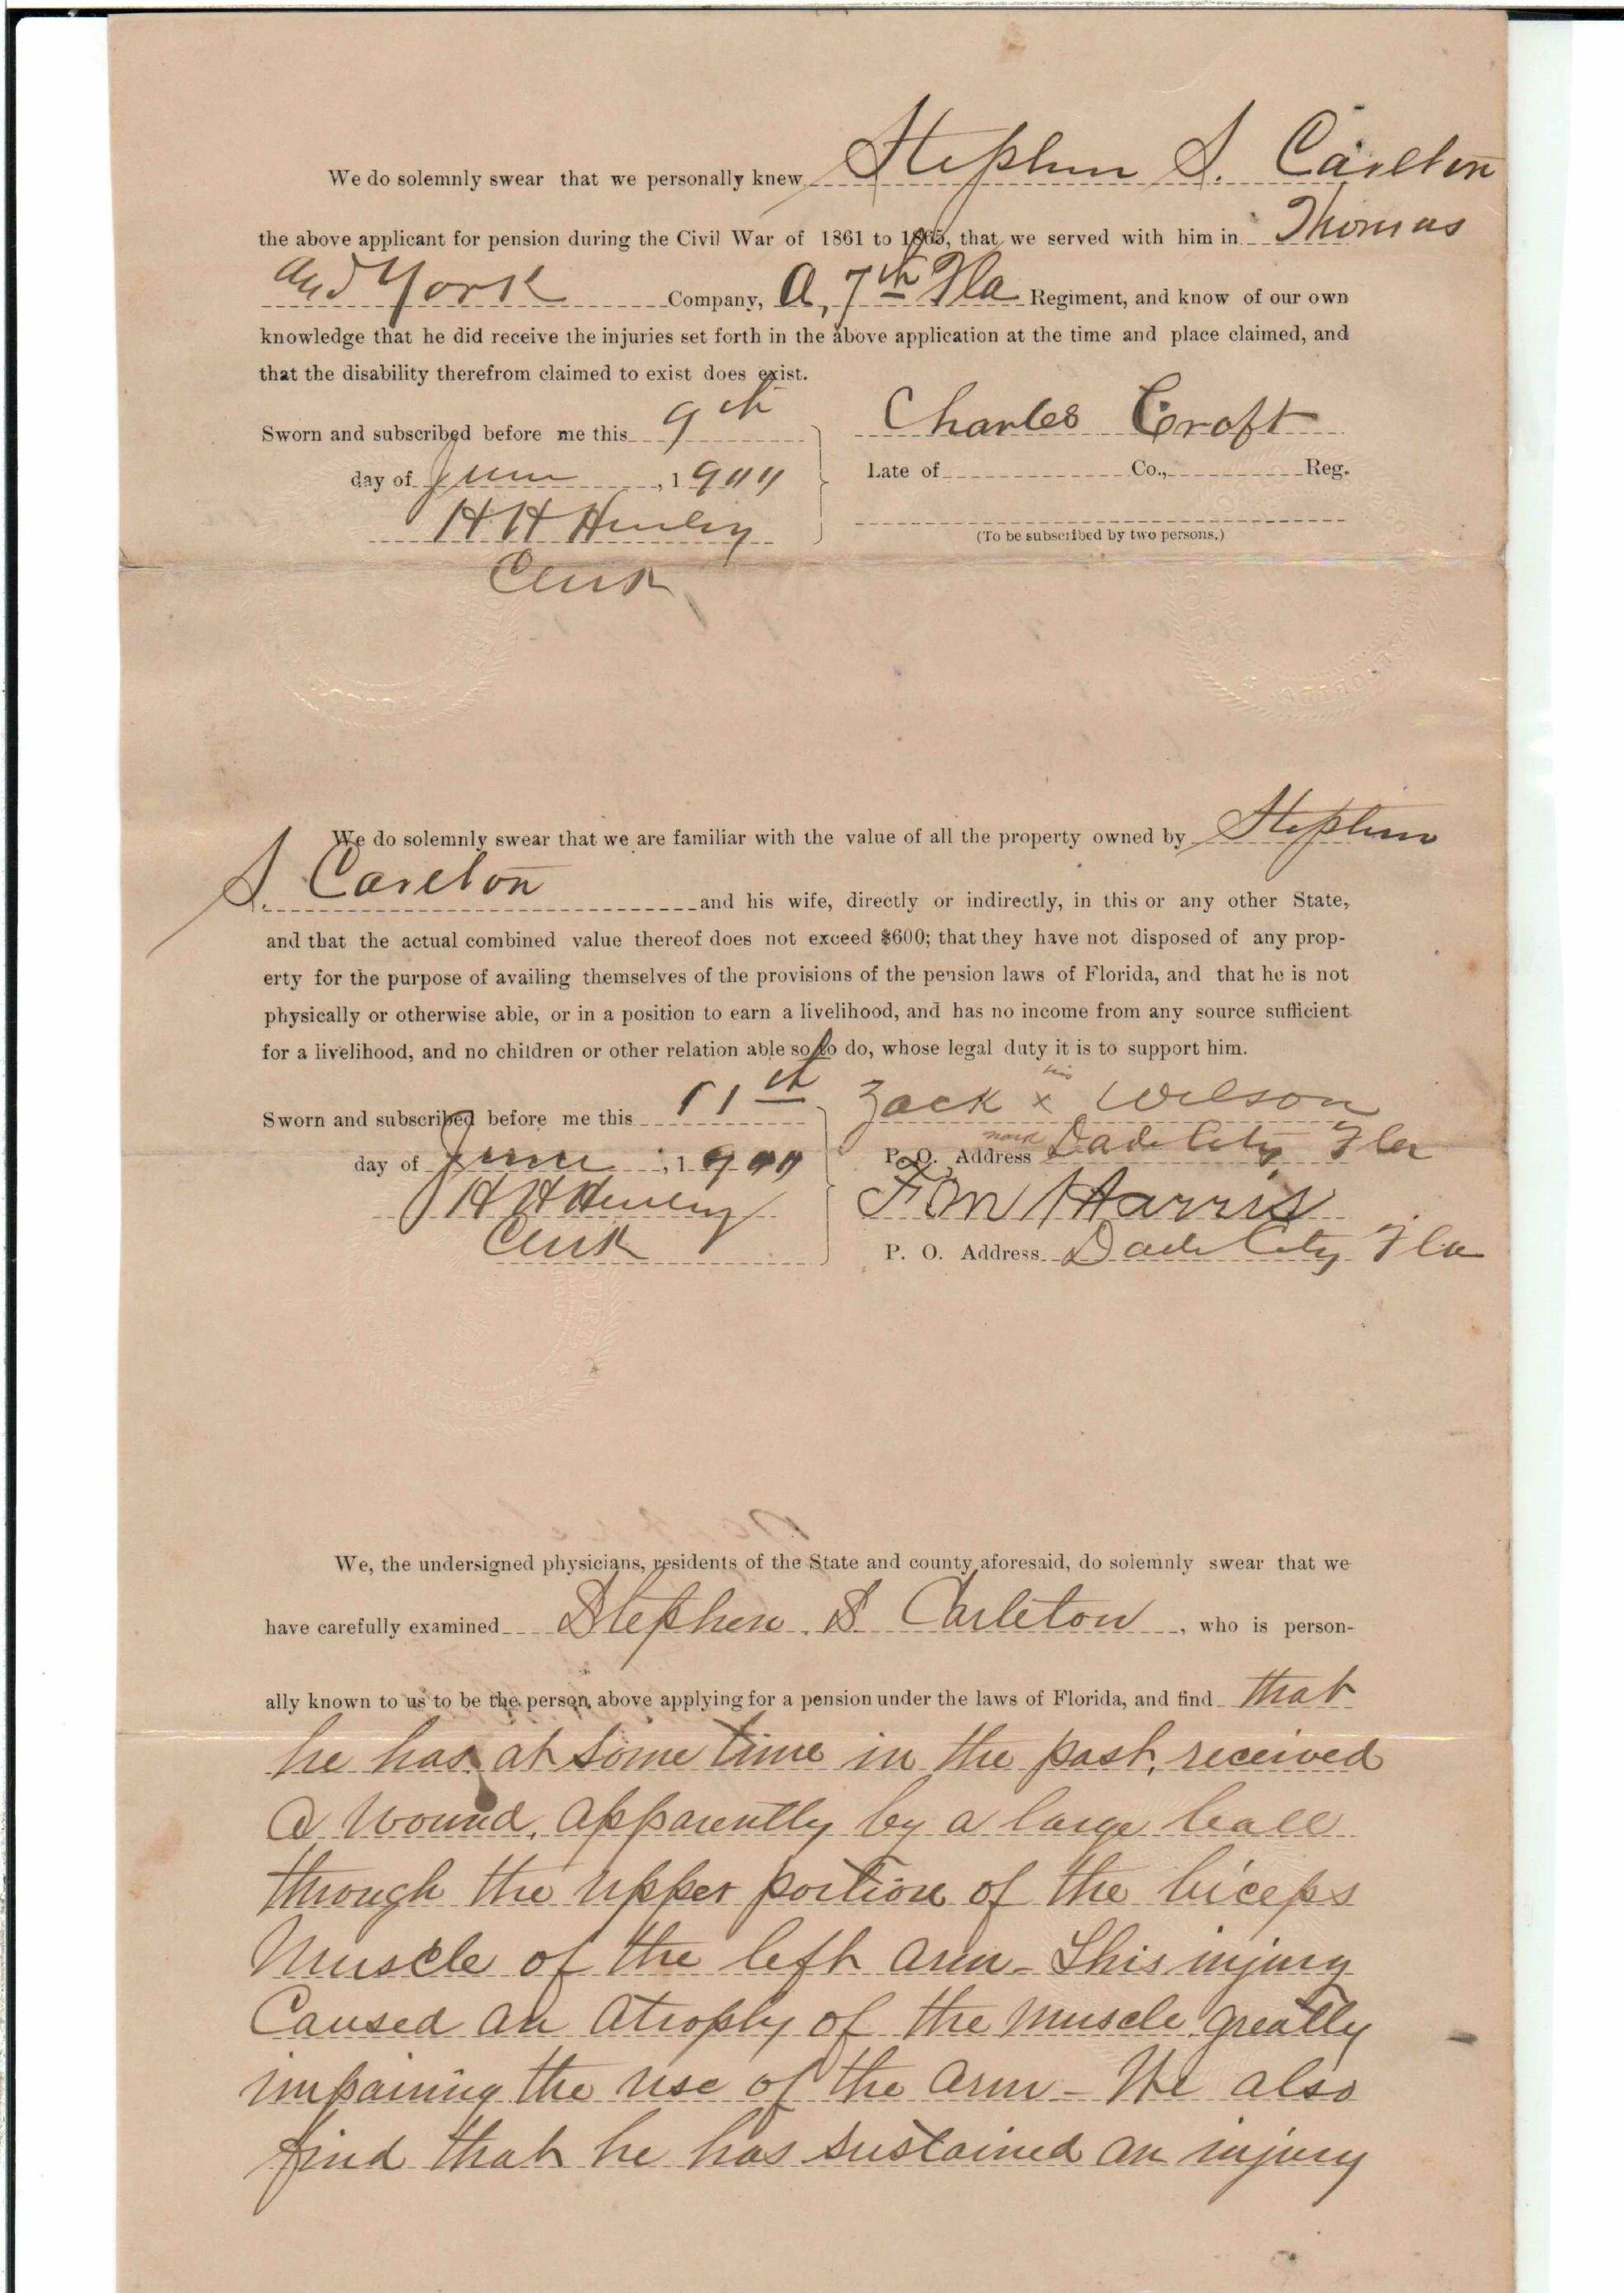 We do solemnly swear that we personally knew Stephen S. Carlton
the above applicant for pension during the Civil War of 1861 to 1865, that we served with him in Thomas
and York Company, A, 7th Fla Regiment, and know of our own
knowledge that he did receive the injuries set forth in the above application at the time and place claimed, and
that the disability therefrom claimed to exist does exist.
Sworn and subscribed before me this 9th
day of June, 1900
H H Henley
Clerk
Charles Croft
Late of Co., Reg.
(To be subscribed by two persons.)
We do solemnly swear that we are familiar with the value of all the property owned by Stephen
S. Carlton and his wife, directly or indirectly, in this or any other State,
and that the actual combined value thereof does not exceed $600; that they have not disposed of any prop-
erty for the purpose of availing themselves of the provisions of the pension laws of Florida, and that he is not
physically or otherwise able, or in a position to earn a livelihood, and has no income from any source sufficient
for a livelihood, and no children or other relation able so to do, whose legal duty it is to support him.
Sworn and subscribed before me this 11th
day of June, 1900
H H Henley
Clerk
his
Zack x Wilson
mark
P. O. Address Dade City Fla
F M Harris
P. O. Address Dade City Fla
We, the undersigned physicians, residents of the State and county aforesaid, do solemnly swear that we
have carefully examined Stephen S. Carleton, who is person-
ally known to us to be the person above applying for a pension under the laws of Florida, and find that
he has at some time in the past, received
a wound, apparently by a large ball
through the upper portion of the biceps
Muscle of the left arm - This injury
Caused an atrophy of the muscle greatly
impairing the use of the arm - We also
find that he has sustained an injury